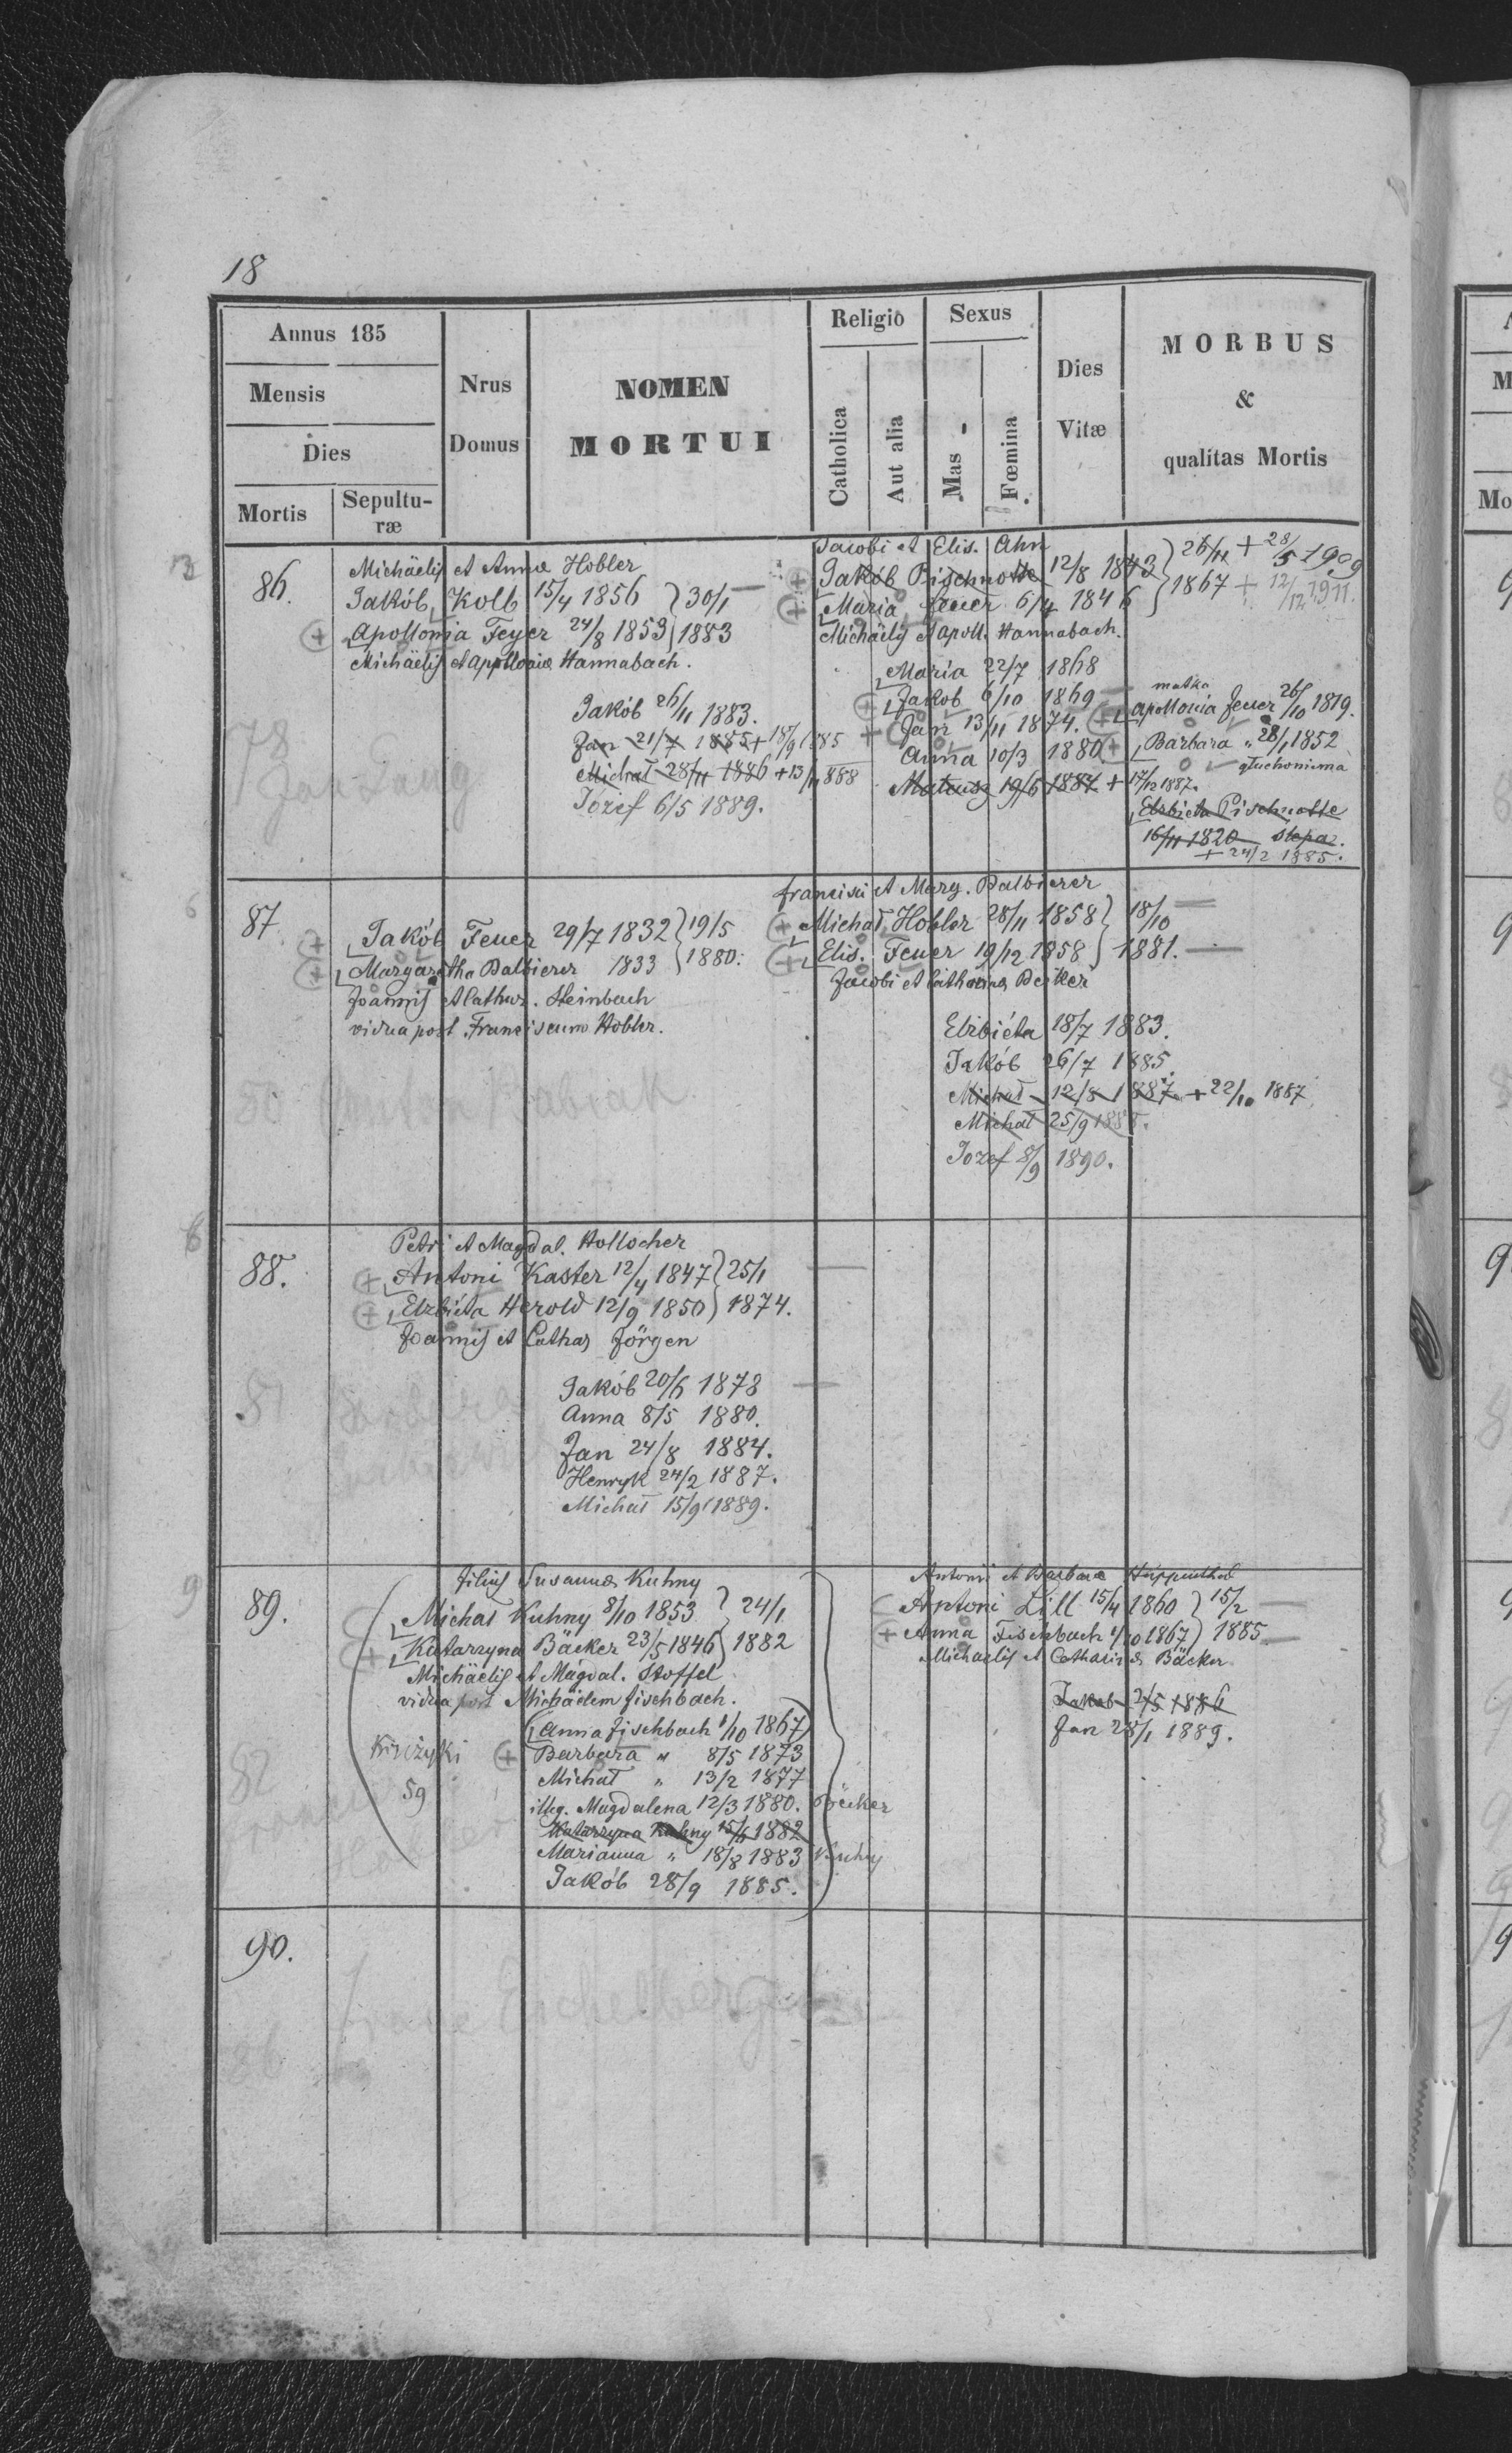 18
Annus 185
Mensis
Dies
Mortis
Sepultu-
ræ
Nrus
Domus
NOMEN
MORTUI
Religio
Catholica
Aut alia
Sexus
Mas
Fœmina
Dies
Vitæ
MORBUS
&
qualitas Mortis
86.
Michäelis et Annæ Hobler
Jakób Kolb 15/4 1856 } 30/1
Apollonia Feyer 24/8 1853 } 1883
Michäelis et Apolloniæ Hannabach.
Jakób 26/11 1883.
Jan 21/7 1885 + 18/9 1885
Michał 28/11 1886 + 13/11 888
Józef 6/5 1889.
78
Jacobi et Elis. Ahn
Jakób Pischnotte 12/8 1843 } 26/11 + 28/5 1909
Maria Feuer 6/4 1846 } 1867 + 12/12 1911.
Michäelis et Apoll. Hannabach.
Maria 22/7 1868
Jakob 6/10 1869
Jan 13/11 1874.
Anna 10/3 1880
Mateusz 19/5 1887 + 17/12 1887.
matka
Apollonia Feuer 26/10 1819.
Barbara " 28/1 1852
głuchoniema
Elzbieta Pischnotte
16/11 1820 slepa.
+ 24/2 1885.
87.
Jakób Feuer 29/7 1832 } 19/5
Margaretha Balbierer 1833 } 1880.
Joannis et Cathar. Steinbach
vidua post Franciscum Hobler.
Francisci et Marg. Balbierer
Michał Hobler 28/11 1858 } 18/10
Elis. Feuer 19/12 1858 } 1881.
Jacobi et Catharinæ Becker
Elzbiéta 18/7 1883.
Jakób 26/7 1885.
Michał 12/8 1887 + 22/10 1887
Michał 25/9 1888.
Jozef 8/9 1890.
88.
Petri et Magdal. Hollocher
Antoni Kaster 12/4 1847 } 25/1
Elzbiéta Herold 12/9 1850 } 1874.
Joannis et Cathar Jörgen
Jakób 20/6 1878
Anna 8/5 1880.
Jan 24/8 1884.
Henryk 24/2 1887.
Michał 15/9 1889.
89.
filius Susannæ Kuhny
Michał Kuhny 8/10 1853 } 24/1
Katarzyna Bäcker 23/5 1846 } 1882
Michäelis et Magdal. Stoffel
vidua post Michäelem Fischbach.
Anna Fischbach 1/10 1867
Barbara " 8/5 1873
Michał " 13/2 1877
illeg. Magdalena 12/3 1880. Böcker
Katarzyna Kuhny 15/6 1882
Marianna " 18/8 1883 Kuhny
Jakób 28/9 1885.
59
82
Antonii et Barbaræ
Antoni Lill 15/4 1860 } 15/2
Anna Fischbach 1/10 1867 } 1885
Michaelis et Catharinæ Bäcker
Jakob 2/5 1886
Jan 28/1 1889.
90.